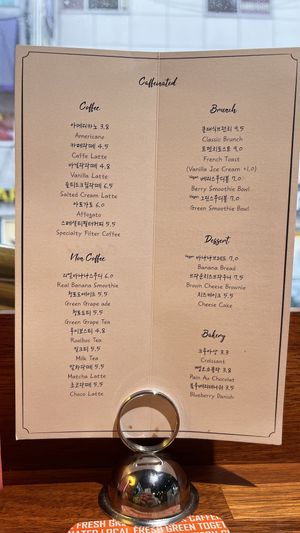 Caffeinated
Coffee
아메리카노 3.8
Americano
카페라떼 4.5
Caffe Latte
바닐라라떼 5.5
Vanilla Latte
솔티드크림라떼 6.5
Salted Cream Latte
아포가토 6.0
Affogato
스페셜티필터커피 5.5
Specialty Filter Coffee
Non Coffee
리얼바나나스무디 6.0
Real Banana Smoothie
청포도에이드 5.5
Green Grape ade
청포도티 5.5
Green Grape Tea
루이보스티 4.8
Rooibus Tea
밀크티 5.5
Milk Tea
말차라떼 5.5
Matcha Latte
초코라떼 5.5
Choco Latte
Brunch
클래식브런치 9.5
Classic Brunch
프렌치토스트 9.0
French Toast
(Vanilla Ice Cream +1.0)
베리스무디볼 7.0
Berry Smoothie Bowl
그린스무디볼 7.0
Green Smoothie Bowl
Dessert
바나나브레드 7.0
Banana Bread
브라운치즈브라우니 7.5
Brown Cheese Brownie
치즈케이크 5.5
Cheese Cake
Bakery
크루아상 3.3
Croissant
뺑오쇼콜라 3.8
Pain Au Chocolat
블루베리데니쉬 3.5
Blueberry Danish
FRESH GREEN TOGE